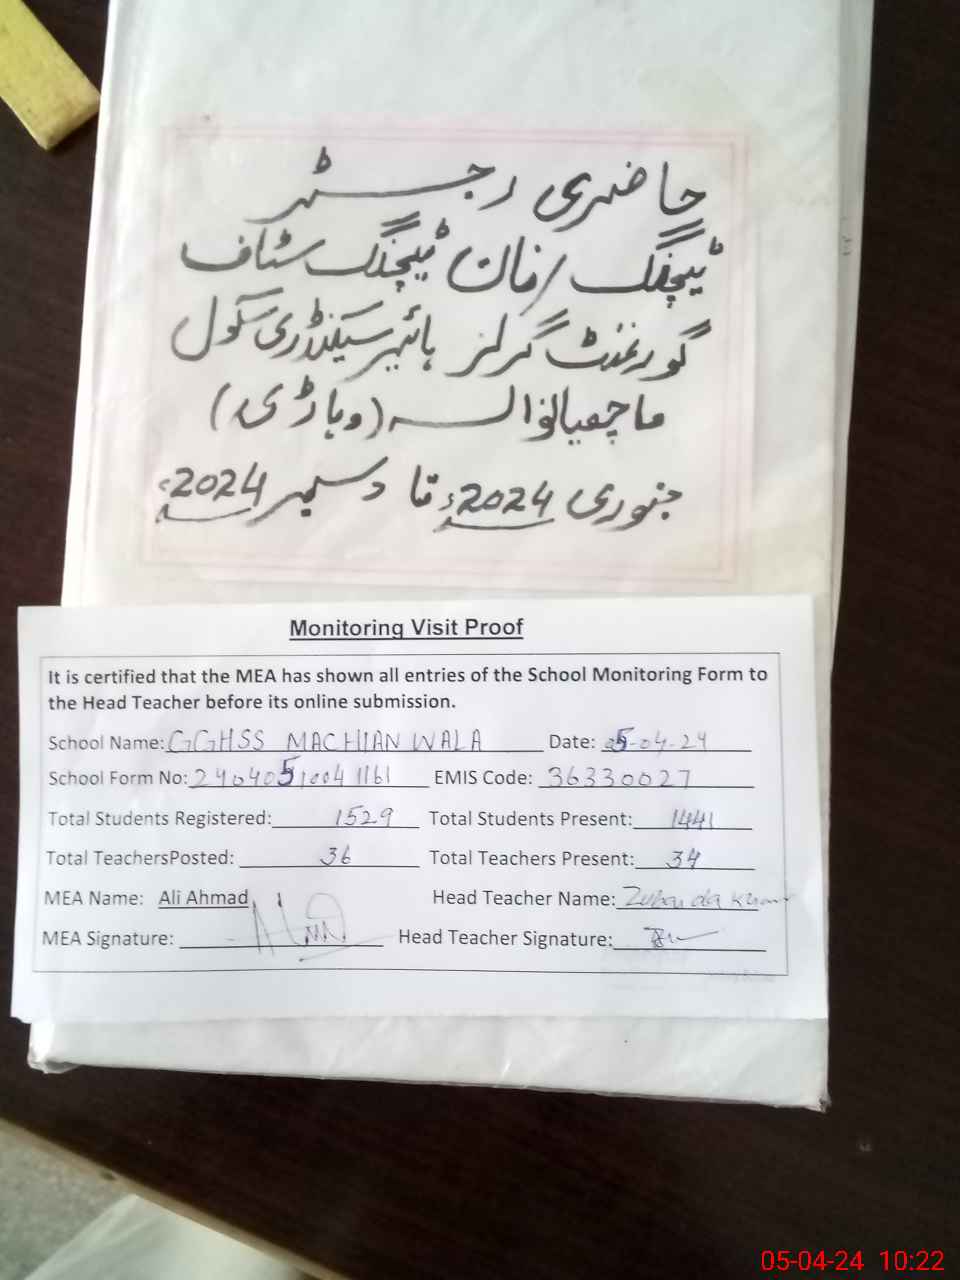 حاضری رجسٹر
ٹیچنگ / نان ٹیچنگ سٹاف
گورنمنٹ گرلز ہائیر سیکنڈری سکول
ماچھیانوالہ (وہاڑی)
جنوری 2024ء تا دسمبر 2024ء
Monitoring Visit Proof
It is certified that the MEA has shown all entries of the School Monitoring Form to
the Head Teacher before its online submission.
School Name: GGHSS MACHIANWALA Date: 05-04-24
School Form No: 24040510041161 EMIS Code: 36330027
Total Students Registered: 1529 Total Students Present: 1441
Total TeachersPosted: 36 Total Teachers Present: 34
MEA Name: Ali Ahmad Head Teacher Name: Zubaida Khanum
MEA Signature: Head Teacher Signature:
05-04-24 10:22